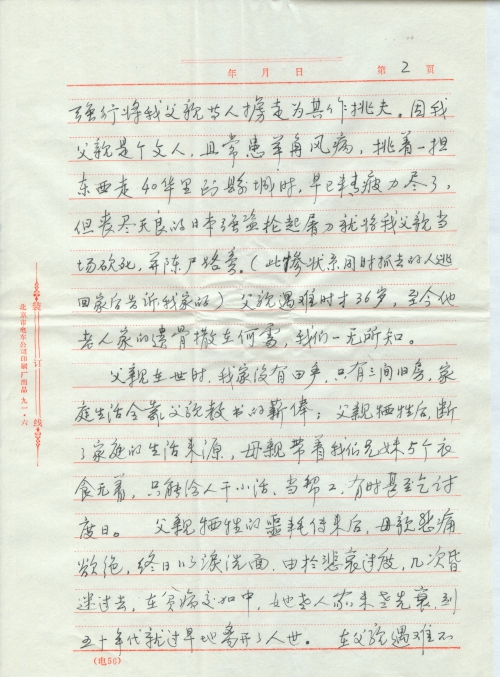 年 月 日 第 2 页
强行将我父亲等人掳走为其作挑夫。因我
父亲是个文人，且常患羊角风病，挑着一担
东西走40华里到县城时，早已精疲力尽了，
但丧尽天良的日本强盗抡起屠刀就将我父亲当
场砍死，并陈尸路旁。（此惨状系同时抓去的人逃
回家后告诉我家的）父亲遇难时才36岁，至今他
老人家的遗骨撒在何处，我们一无所知。
父亲在世时，我家没有田产，只有三间旧房，家
庭生活全靠父亲教书的薪俸；父亲牺牲后，断
了家庭的生活来源，母亲带着我们兄妹5个衣
食无着，只能给人干小活、当帮工，有时甚至乞讨
度日。 父亲牺牲的噩耗传来后，母亲悲痛
欲绝，终日以泪洗面，由于悲哀过度，几次昏
迷过去，在贫病交加中，她老人家未老先衰，到
五十年代就过早地离开了人世。 在父亲遇难不
（电56）
装订线
北京市电车公司印刷厂出品 九一·六